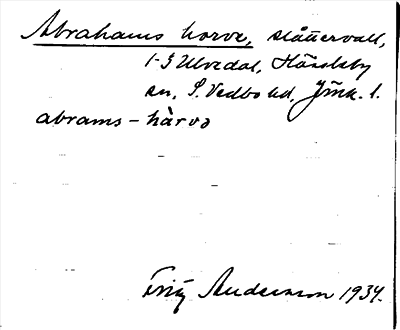 Abrahams horve, slåttervall,
1-3 Ulvedal, Hässleby
sn, S. Vedbo hd, Jönk. l.
abrams-hàrvə
Fritz Andersson 1934.